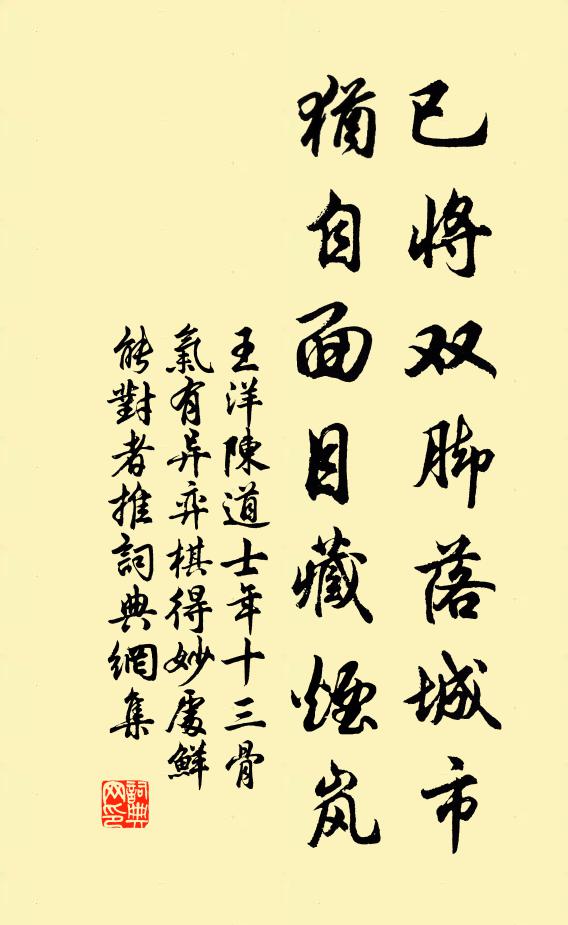 已将双脚落城市
猶自面目藏煙岚
王洋陳道士年十三骨
氣有异弈棋得妙處鮮
能對者推詞典網集
詞典网印